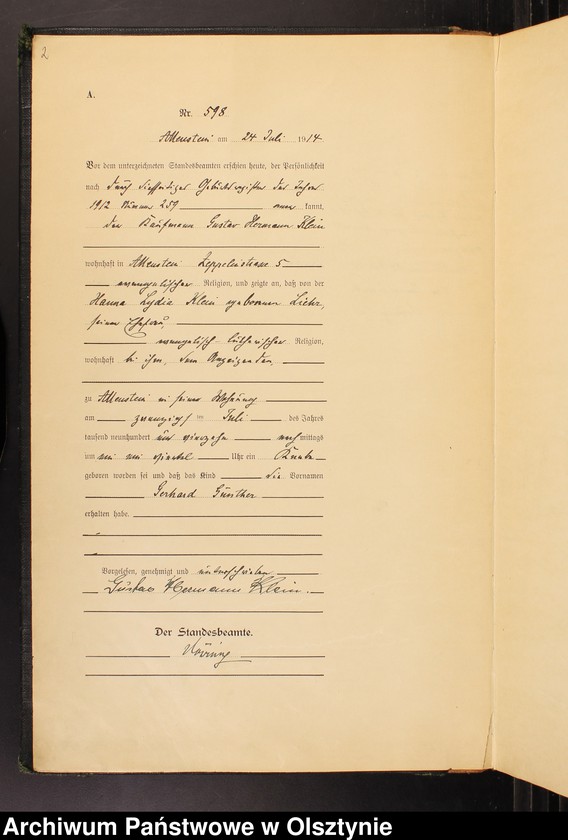 2
A.
Nr. 598
Allenstein am 24 Juli 1914
Vor dem unterzeichneten Standesbeamten erschien heute, der Persönlichkeit
nach durch diesseitiges Geburtsregister des Jahres
1912 Nummer 259 kannt,
der Kaufmann Gustav Hermann Klein
wohnhaft in Allenstein Zeppelinstrasse 5
evangelischer Religion, und zeigte an, daß von der
Hanna Lydia Klein geborenen Liehr,
seiner Ehefrau,
evangelisch lutherischer Religion,
wohnhaft bei ihm, dem Anzeigenden,
zu Allenstein in seiner Wohnung
am zwanzigsten Juli des Jahres
tausend neunhundert und vierzehn nachmittags
um ein viertel Uhr ein Knabe
geboren worden sei und daß das Kind die Vornamen
Gerhard Günther
erhalten habe.
Vorgelesen, genehmigt und unterschrieben
Gustav Hermann Klein.
Der Standesbeamte.
Archiwum Państwowe w Olsztynie